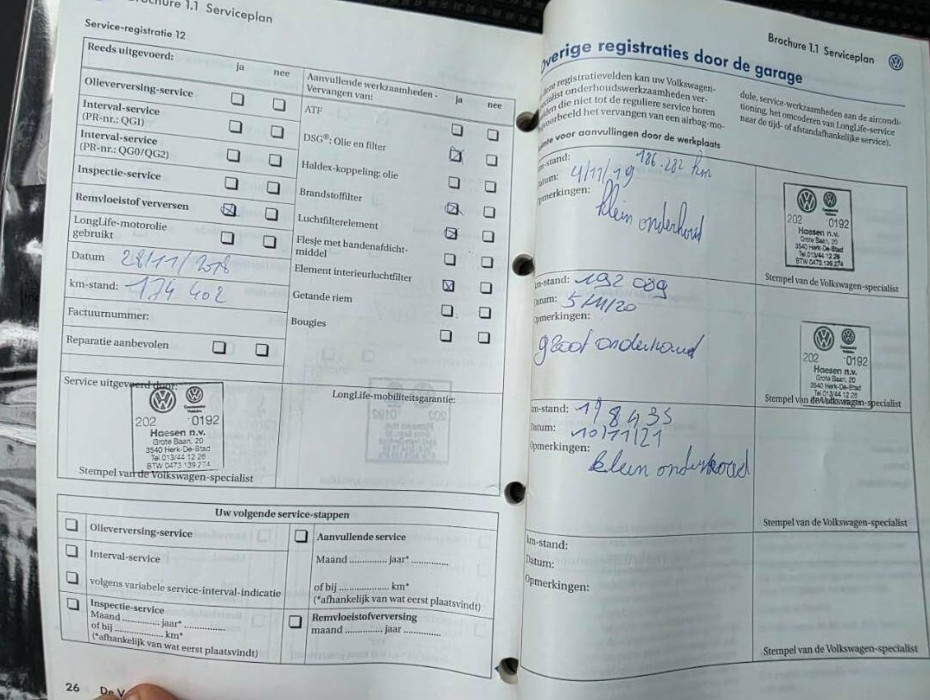 Brochure 1.1 Serviceplan
Service-registratie 12
Reeds uitgevoerd:
ja
nee
Olieverversing-service
Interval-service
(PR-nr.: QG1)
Interval-service
(PR-nr.: QG0/QG2)
Inspectie-service
Remvloeistof verversen
LongLife-motorolie
gebruikt
Datum 28/11/2018
km-stand: 174 402
Factuurnummer:
Reparatie aanbevolen
Aanvullende werkzaamheden -
Vervangen van:
ja
nee
ATF
DSG®: Olie en filter
Haldex-koppeling: olie
Brandstoffilter
Luchtfilterelement
Flesje met bandenafdicht-
middel
Element interieurluchtfilter
Getande riem
Bougies
Service uitgevoerd door:
202 0192
Haesen n.v.
Grote Baan, 20
3540 Herk-De-Stad
Tel.013/44 12 26
BTW 0473.139.274
Stempel van de Volkswagen-specialist
LongLife-mobiliteitsgarantie:
Uw volgende service-stappen
Olieverversing-service
Interval-service
volgens variabele service-interval-indicatie
Inspectie-service
Maand ............ jaar* ............
of bij ............ km*
(*afhankelijk van wat eerst plaatsvindt)
Aanvullende service
Maand ............ jaar* ............
of bij ............ km*
(*afhankelijk van wat eerst plaatsvindt)
Remvloeistofverversing
maand ............ jaar ............
26 De V
Brochure 1.1 Serviceplan
Overige registraties door de garage
deze registratievelden kan uw Volkswagen-
specialist onderhoudswerkzaamheden ver-
melden die niet tot de reguliere service horen
bijvoorbeeld het vervangen van een airbag-mo-
dule, service-werkzaamheden aan de aircondi-
tioning, het omcoderen van LongLife-service
naar de tijd- of afstandafhankelijke service).
Ruimte voor aanvullingen door de werkplaats
km-stand: 186.282 km
Datum: 4/11/19
Opmerkingen:
klein onderhoud
202 0192
Haesen n.v.
Grote Baan, 20
3540 Herk-De-Stad
Tel.013/44 12 26
BTW 0473.139.274
Stempel van de Volkswagen-specialist
km-stand: 192 089
Datum: 5/11/20
Opmerkingen:
groot onderhoud
202 0192
Haesen n.v.
Grote Baan, 20
3540 Herk-De-Stad
Tel.013/44 12 26
Stempel van de Volkswagen-specialist
km-stand: 198435
Datum: 10/11/21
Opmerkingen:
klein onderhoud
Stempel van de Volkswagen-specialist
km-stand:
Datum:
Opmerkingen:
Stempel van de Volkswagen-specialist